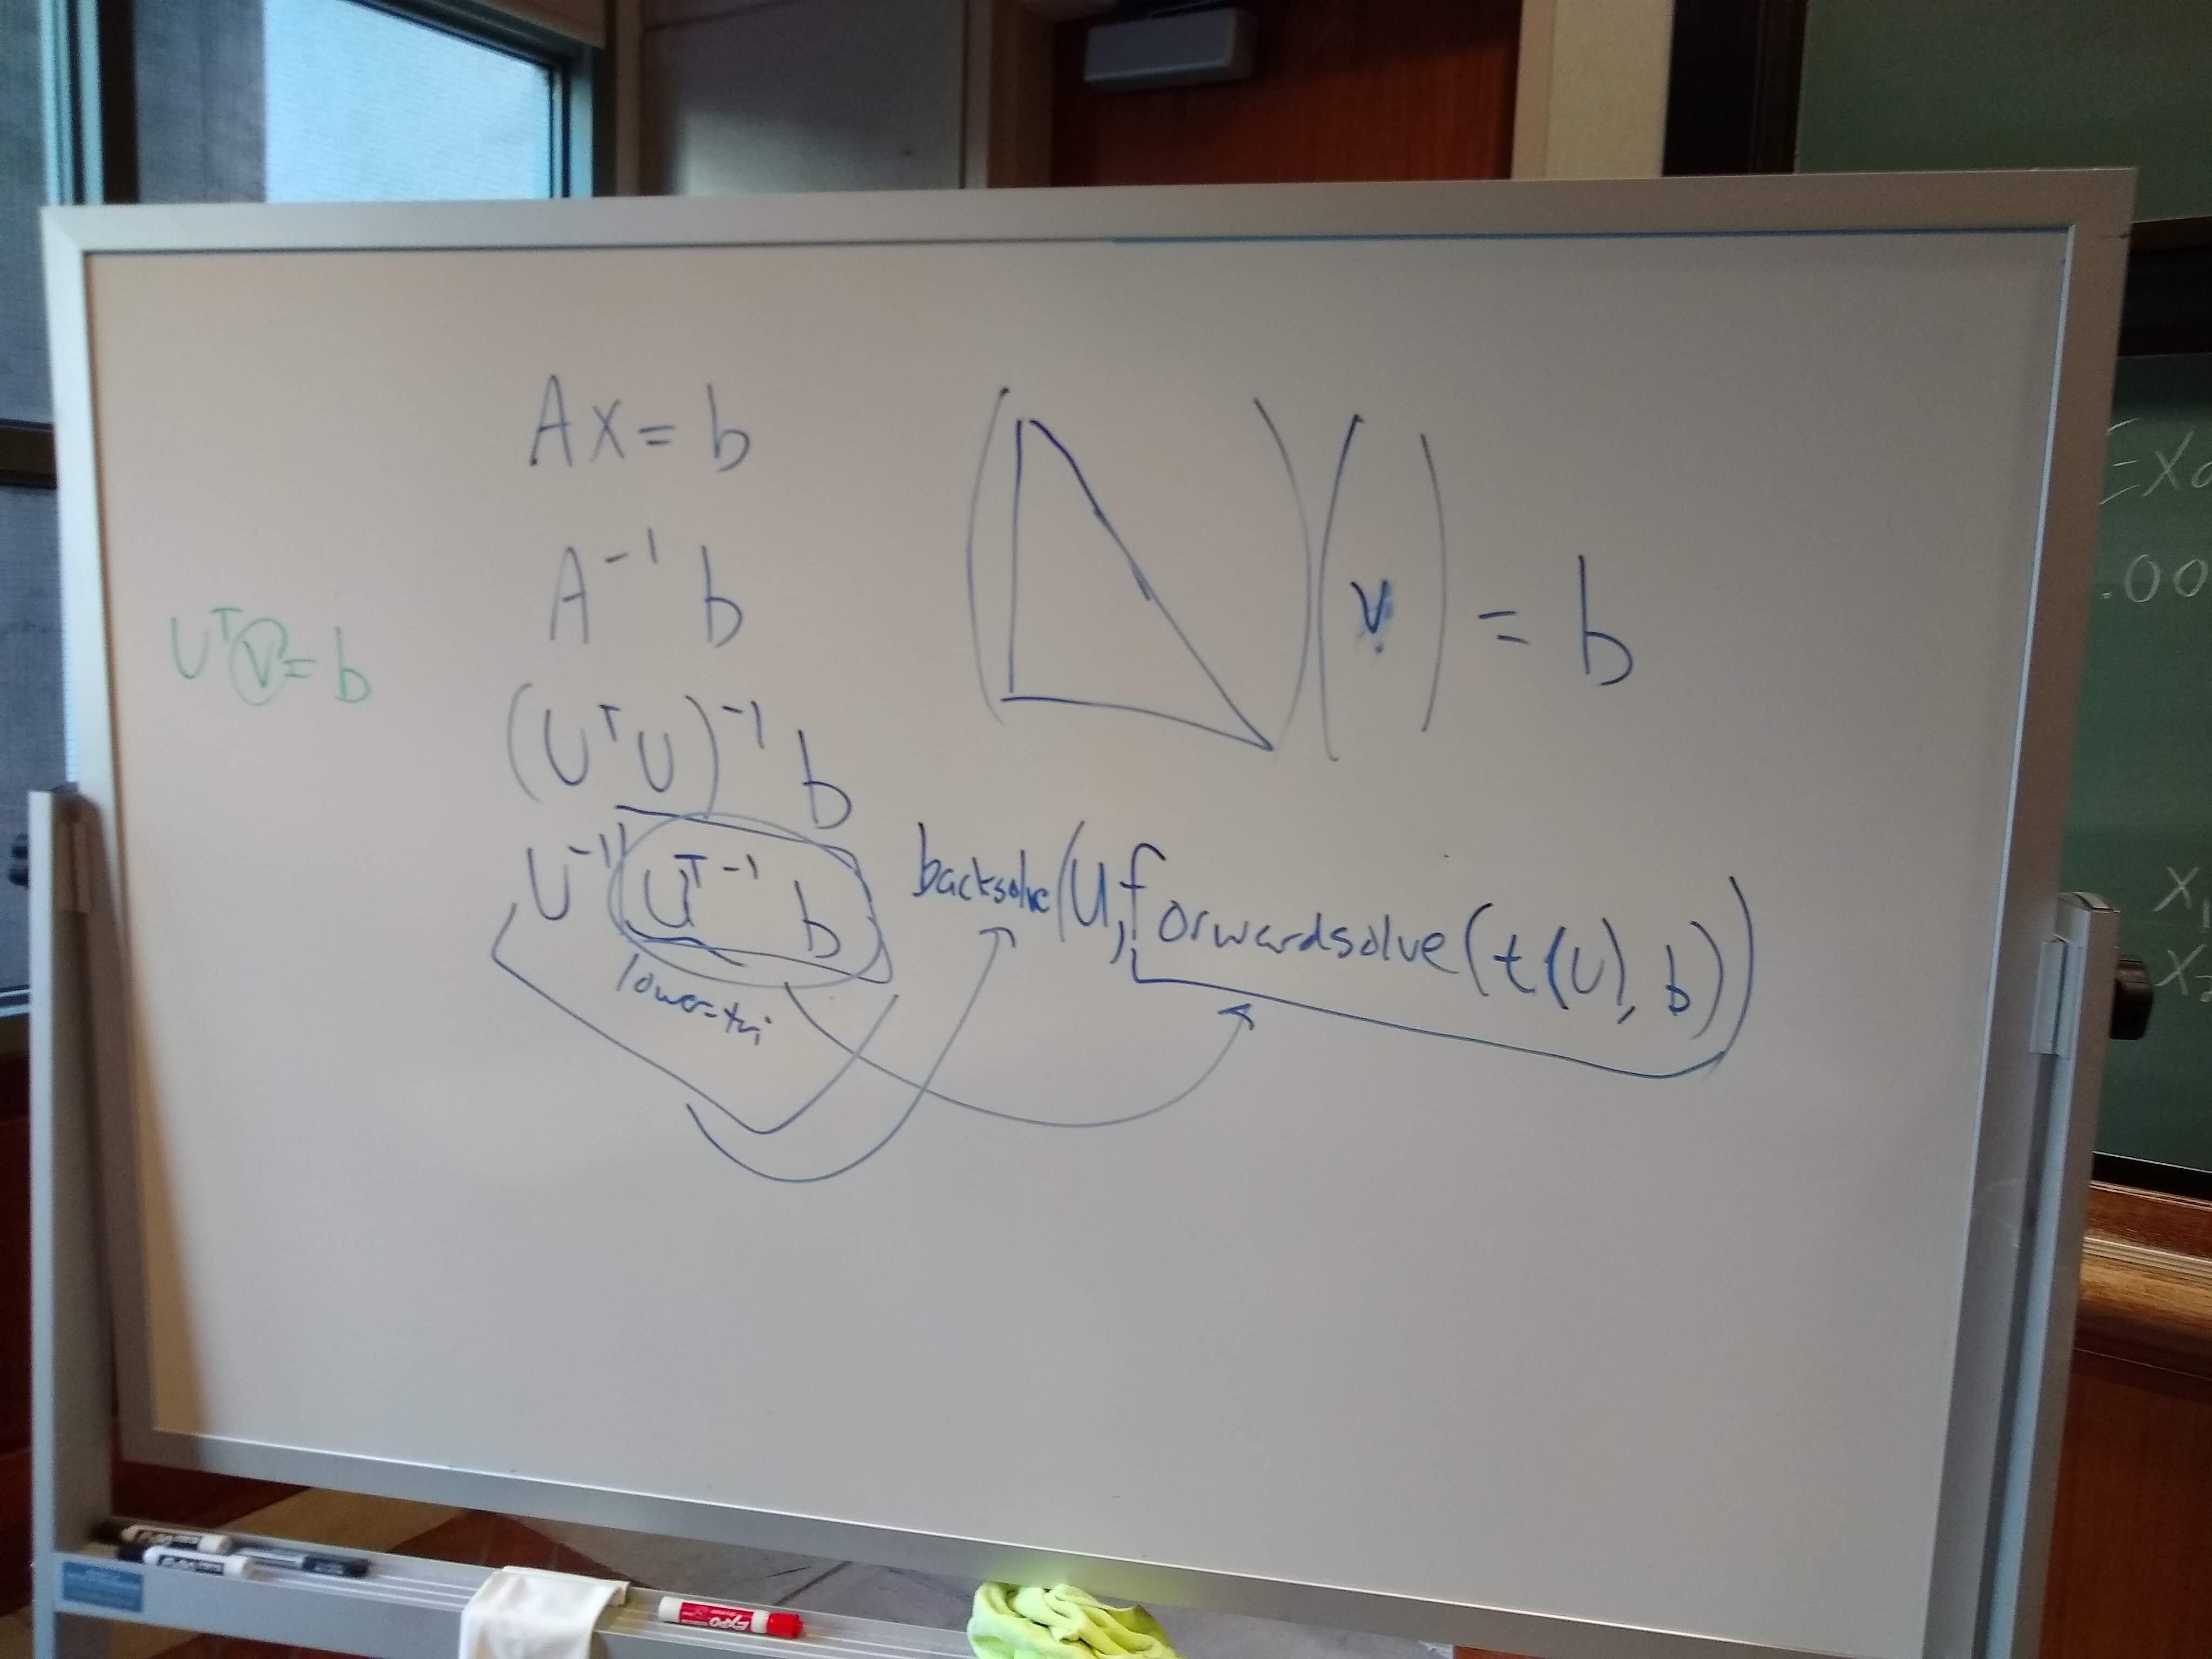 Ax = b
A⁻¹ b
Uᵀv = b
(UᵀU)⁻¹ b
U⁻¹ Uᵀ⁻¹ b
lower-tri
v = b
backsolve(U, forwardsolve(t(U), b))
EXPO
.00
X₁
X₂